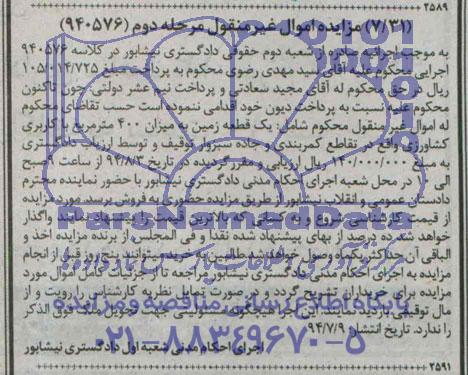 ۲۵۸۹
(۷/۳۱) مزایده اموال غیر منقول مرحله دوم (۹۴۰۵۷۶)
به موجب اجرائیه صادره از شعبه دوم حقوقی دادگستری نیشابور در کلاسه ۹۴۰۵۷۶
اجرایی محکوم علیه آقای سید مهدی رضوی محکوم به پرداخت مبلغ ۱۰۵/۰۱۴/۷۲۵
ریال در حق محکوم له آقای مجید سعادتی و پرداخت نیم عشر دولتی چون تاکنون
محکوم علیه نسبت به پرداخت دیون خود اقدامی ننموده است حسب تقاضای محکوم
له اموال غیر منقول محکوم شامل: یک قطعه زمین به میزان ۴۰۰ مترمربع با کاربری
کشاورزی واقع در تقاطع کمربندی و جاده سبزوار توقیف و توسط ارزیاب دادگستری
به مبلغ ۱۴۰/۰۰۰/۰۰۰ ریال ارزیابی و مقرر گردیده در تاریخ ۹۴/۸/۳ از ساعت ۹ صبح
الی ۱۰ در محل شعبه اجرای احکام مدنی دادگستری نیشابور با حضور نماینده محترم
دادستان عمومی و انقلاب نیشابور از طریق مزایده حضوری به فروش برسد. مورد مزایده
از قیمت کارشناسی شروع و به کسانی که بالاترین قیمت را پیشنهاد نمایند واگذار
خواهد شد ده درصد از بهای پیشنهاد شده نقدا و فی المجلس از برنده مزایده اخذ و
الباقی آن حداکثر یکماه وصول خواهد شد طالبین به خرید میتوانند پنج روز قبل از انجام
مزایده به اجرای احکام مدنی دادگستری نیشابور مراجعه تا این جزئیات کامل اموال مورد
مزایده برای خریداران تشریح گردد و در صورت تمایل نظریه کارشناسی را رویت و از
مال توقیفی بازدید نمایند. این اجرا هیچگونه مسئولیتی جهت تحویل ملک فوق الذکر
را ندارد. تاریخ انتشار: ۹۴/۷/۹
اجرای احکام مدنی شعبه اول دادگستری نیشابور
۲۵۹۱
ParsNamadData
پایگاه اطلاع رسانی مناقصه و مزایده
۰۲۱-۸۸۳۴۹۶۷۰-۵